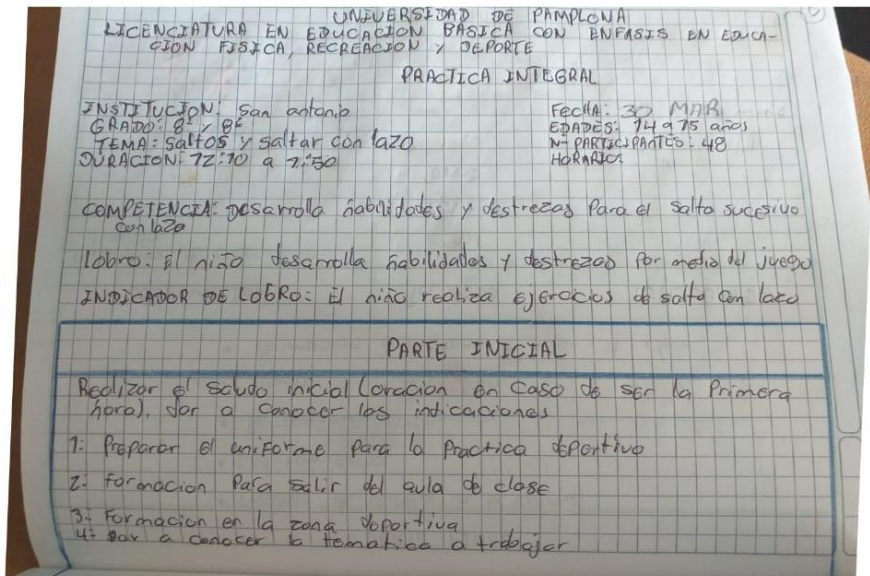 UNIVERSIDAD DE PAMPLONA
LICENCIATURA EN EDUCACION BASICA CON ENFASIS EN EDUCA-
CION FISICA, RECREACION Y DEPORTE
PRACTICA INTEGRAL
INSTITUCION: San antonio
FECHA: 30 MAR
GRADO: 8º y 8º
EDADES: 14 a 15 años
TEMA: Saltos y saltar con lazo
Nº PARTICIPANTES: 48
DURACION: 12:10 a 1:50
HORARIO:
COMPETENCIA: Desarrolla habilidades y destrezas Para el salto sucesivo
con lazo
Lobro: El niño desarrolla habilidades y destrezas por medio del juego
INDICADOR DE LOGRO: El niño realiza ejercicios de salto con lazo
PARTE INICIAL
Realizar el saludo inicial (oracion en caso de ser la Primera
hora), dar a conocer las indicaciones
1: Preparar el uniforme para la Practica deportiva
2: Formacion Para salir del aula de clase
3: Formacion en la zona deportiva
4: Dar a conocer la tematica a trabajar